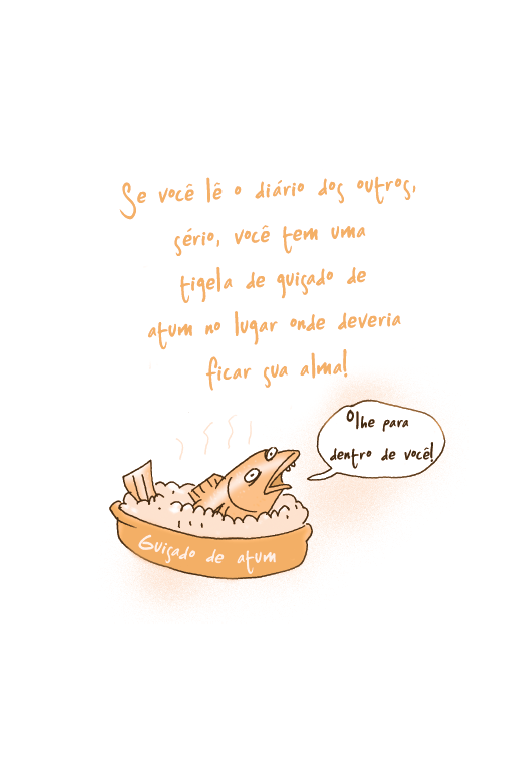 Se você lê o diário dos outros,
sério, você tem uma
tigela de guisado de
atum no lugar onde deveria
ficar sua alma!
Olhe para
dentro de você!
Guisado de atum